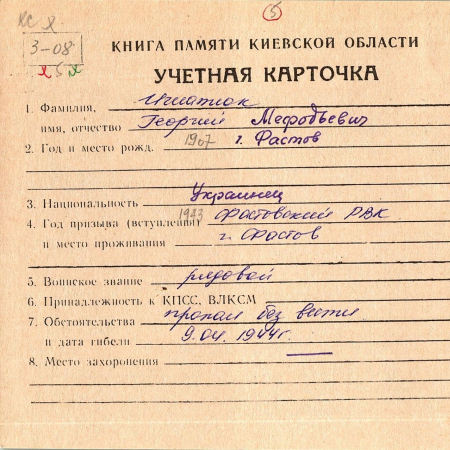 КС Я
5
3-08
х 5 х
КНИГА ПАМЯТИ КИЕВСКОЙ ОБЛАСТИ
УЧЕТНАЯ КАРТОЧКА
1. Фамилия, Игнатюк
имя, отчество Георгий Мефодьевич
2. Год и место рожд. 1907 г. Фастов
3. Национальность Украинец
4. Год призыва (вступления) 1943 Фастовский РВК
и место проживания г. Фастов
5. Воинское звание рядовой
6. Принадлежность к КПСС, ВЛКСМ
7. Обстоятельства пропал без вести
и дата гибели 9.04.1944г.
8. Место захоронения